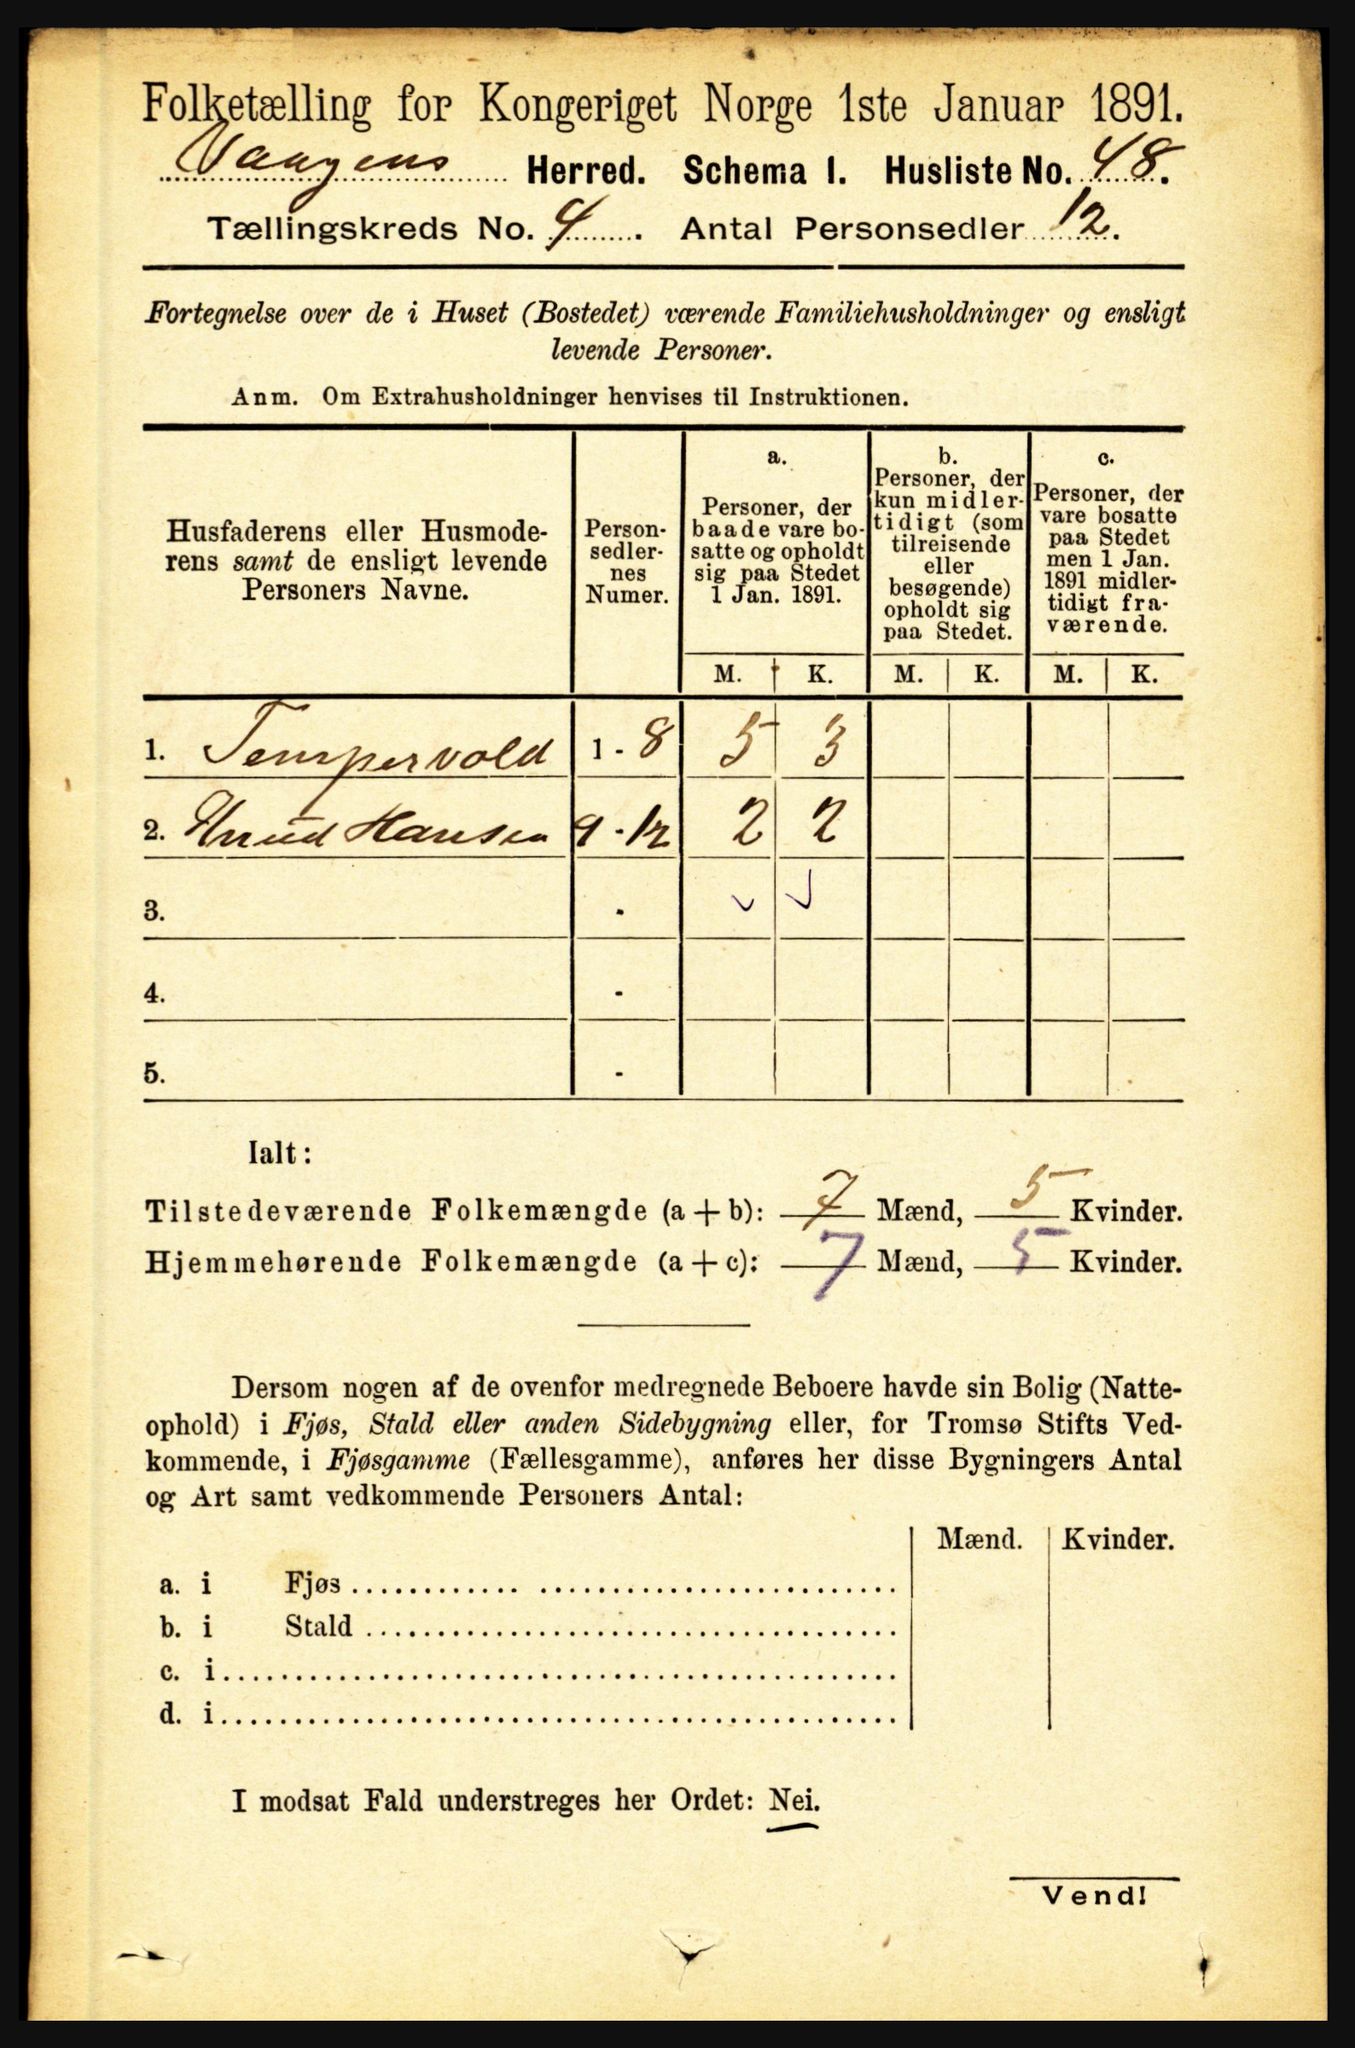 Folketælling for Kongeriget Norge 1ste Januar 1891.
Vaagens Herred. Schema I. Husliste No. 48.
Tællingskreds No. 4. Antal Personsedler 12.
Fortegnelse over de i Huset (Bostedet) værende Familiehusholdninger og ensligt
levende Personer.
Anm. Om Extrahusholdninger henvises til Instruktionen.
Husfaderens eller Husmode-
rens samt de ensligt levende
Personers Navne.
Person-
sedler-
nes
Numer.
a.
Personer, der
baade vare bo-
satte og opholdt
sig paa Stedet
1 Jan. 1891.
b.
Personer, der
kun midler-
tidigt (som
tilreisende
eller
besøgende)
opholdt sig
paa Stedet.
c.
Personer, der
vare bosatte
paa Stedet
men 1 Jan.
1891 midler-
tidigt fra-
værende.
M. K. M. K. M. K.
1. Tempervold 1 - 8 5 3
2. Knud Hansen 9 - 12 2 2
3. -
4. -
5. -
Ialt:
Tilstedeværende Folkemængde (a + b): 7 Mænd, 5 Kvinder.
Hjemmehørende Folkemængde (a + c): 7 Mænd, 5 Kvinder.
Dersom nogen af de ovenfor medregnede Beboere havde sin Bolig (Natte-
ophold) i Fjøs, Stald eller anden Sidebygning eller, for Tromsø Stifts Ved-
kommende, i Fjøsgamme (Fællesgamme), anføres her disse Bygningers Antal
og Art samt vedkommende Personers Antal:
Mænd. Kvinder.
a. i Fjøs
b. i Stald
c. i
d. i
I modsat Fald understreges her Ordet: Nei.
Vend!